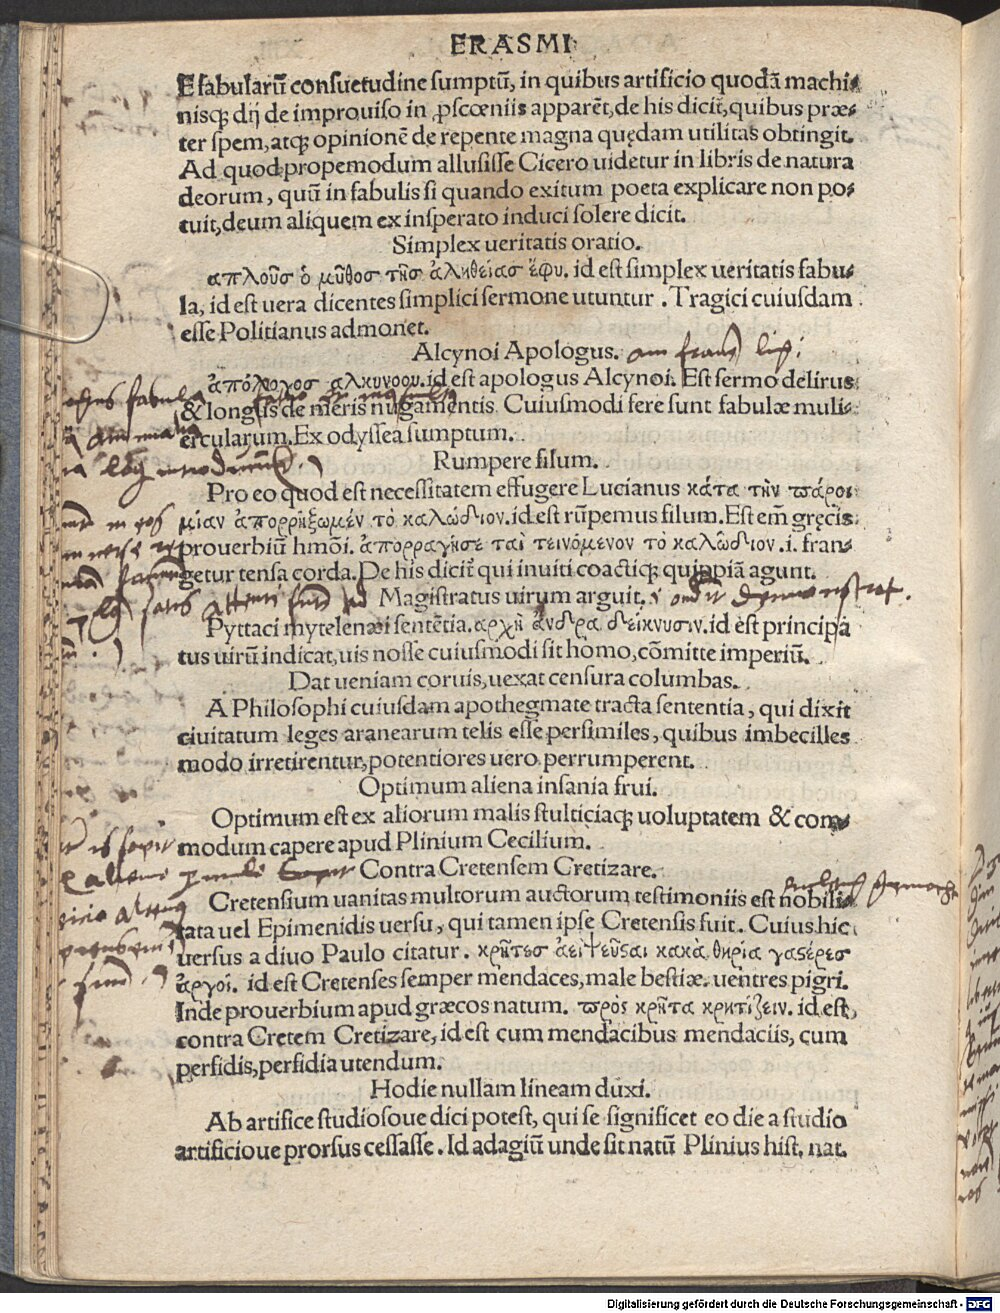 ERASMI
E fabularū consuetudine sumptū, in quibus artificio quodā machi-
nisq; dij de improuiso in ꝓscœniis apparēt, de his dicit, quibus præ-
ter spem, atq; opinionē de repente magna quędam utilitas obtingit.
Ad quod propemodum allusisse Cicero uidetur in libris de natura
deorum, quū in fabulis si quando exitum poeta explicare non po-
tuit, deum aliquem ex insperato induci solere dicit.
Simplex ueritatis oratio.
απλοῦσ ὁ μῦθοσ τῆσ ἀληθείασ ἔφυ. id est simplex ueritatis fabu-
la, id est uera dicentes simplici sermone utuntur. Tragici cuiusdam
esse Politianus admonet.
Alcynoi Apologus.
ἀπόλογοσ αλκυνοου. id est apologus Alcynoi. Est sermo delirus
& longus de meris nugamentis. Cuiusmodi fere sunt fabulæ muli-
ercularum. Ex odyssea sumptum.
Rumpere filum.
Pro eo quod est necessitatem effugere Lucianus κάτα τὴν πάροι
μίαν ἀπορρήξωμέν τὸ καλώδιον. id est rūpemus filum. Est em̄ gręcis
prouerbiū hmōi. ἀπορραγήσε ταί τεινόμενον τὸ καλῶδιον .i. fran-
getur tensa corda. De his dicit qui inuiti coactiq; quippiā agunt.
Magistratus uirum arguit.
Pyttaci mytelenæi sentētia. αρχὴ ἄνδρα δείκνυσιν. id est principa
tus uirū indicat, uis nosse cuiusmodi sit homo, cōmitte imperiū.
Dat ueniam coruis, uexat censura columbas.
A Philosophi cuiusdam apothegmate tracta sententia, qui dixit
ciuitatum leges aranearum telis esse persimiles, quibus imbecilles
modo irretirentur, potentiores uero perrumperent.
Optimum aliena insania frui.
Optimum est ex aliorum malis stulticiaq; uoluptatem & com-
modum capere apud Plinium Cecilium.
Contra Cretensem Cretizare.
Cretensium uanitas multorum auctorum testimoniis est nobili-
tata uel Epimenidis uersu, qui tamen ipse Cretensis fuit. Cuius hic
uersus a diuo Paulo citatur. κρῆτεσ ἀειψεῦϛαι κακὰ θηρία γαϛέρεσ
ἀργοί. id est Cretenses semper mendaces, male bestiæ. uentres pigri.
Inde prouerbium apud græcos natum. πρὸσ κρῆτα κρητίζειν. id est,
contra Cretem Cretizare, id est cum mendacibus mendaciis, cum
perfidis, perfidia utendum.
Hodie nullam lineam duxi.
Ab artifice studiosoue dici potest, qui se significet eo die a studio
artificioue prorsus cessasse. Id adagiū unde sit natū Plinius hist. nat.
Digitalisierung gefördert durch die Deutsche Forschungsgemeinschaft - DFG